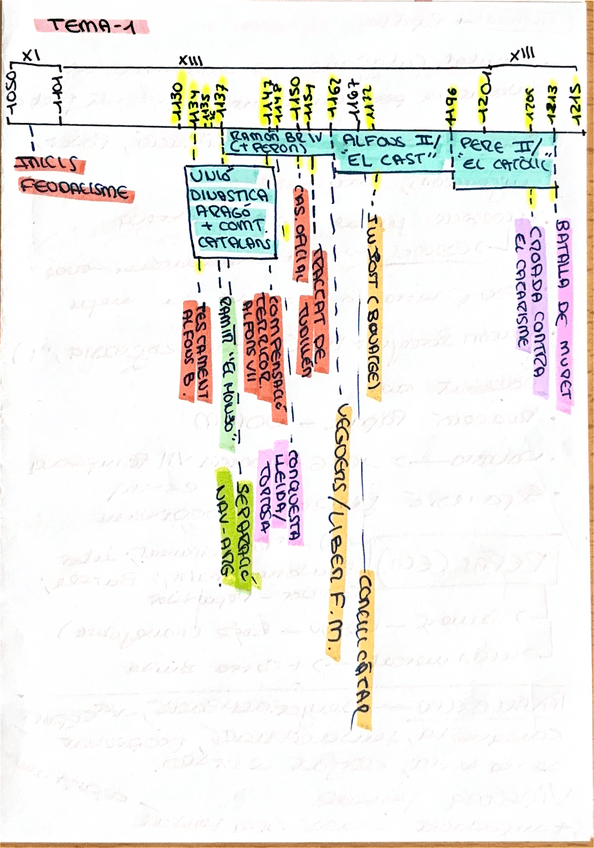 TEMA-1
XI
XIII
XIII
1050
1101
1130
1134
1135
1137
1147
1148
1150
1151
1162
1167
1172
1196
1201
1205
1213
1215
INICIS
FEUDALISME
RAMON BR IV
(+ PERON)
ALFONS II/
"EL CAST"
PERE II/
"EL CATÒLIC
UNIÓ
DINÀSTICA
ARAGÓ
+ COMT.
CATALANS
TESTAMENT
ALFONS B.
RAMIR "EL MONJO"
SEPARACIÓ
NAV-ARG.
COMPENSACIÓ
TERRITOR.
ALFONS VII
CONQUESTA
LLEIDA/
TORTOSA
CAS OFICIAL
TRACTAT DE
TUDILLÉN
VEGUERS/LIBER F.M.
CONCILI CÀTAR
IMPOST (BOVATGE)
CROADA CONTRA
EL CATARISME
BATALLA DE MURET